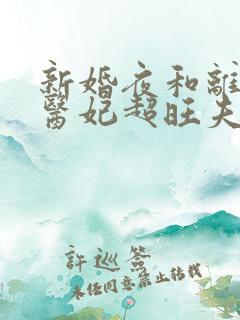 新婚夜和離
醫妃超旺夫
許巡簽
未经同意禁止转载